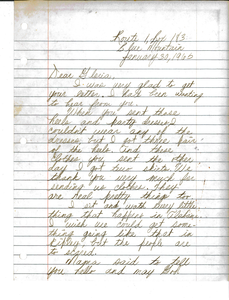 Route 1, Box 183
Blue Mountain
January 30, 1965
Dear Gloria,
I was very glad to get
your letter. I have been wanting
to hear from you.
When you sent those
heels and party dresses I
couldn't wear any of the
dresses but I got three pair
of the heels. And these
clothes you sent the other
day I got two skirts. We
thank you very much for
sending us clothes. They
are real pretty things too.
I sit and with every little
thing that happens in
I wish we could get some-
thing going like that in
Ripley but the people are
to scared.
Mama said to tell
you hello and may God